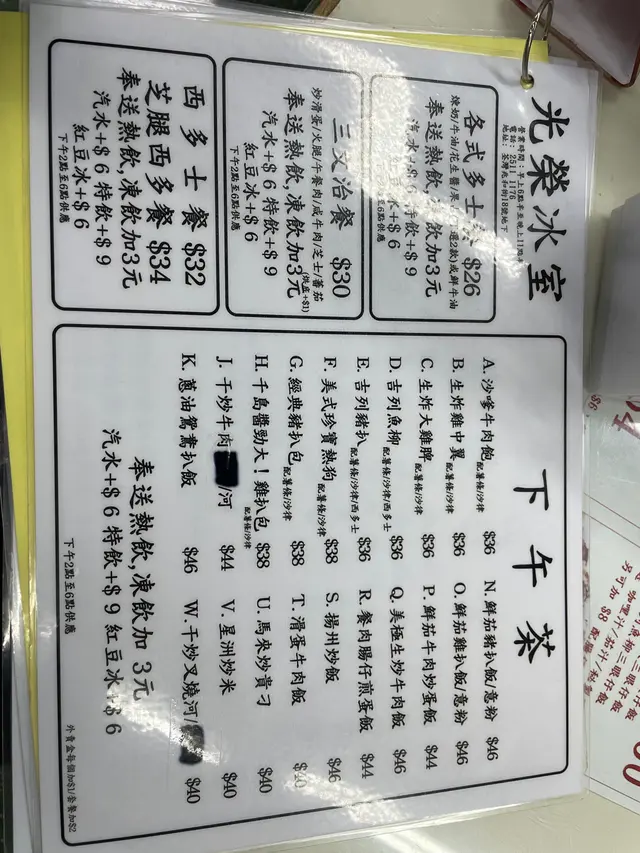 光榮冰室
營業時間：早上6點半至晚上11點
電話：2511 1176
地址：荃灣兆和街18號地下
各式多士 $26
煉奶/牛油/花生醬/果 選2款)或鮮牛油
奉送熱飲,凍飲加3元
汽水+$6 特飲+$9
紅豆冰+$6
下午2點至6點供應
三文治餐 $30
炒滑蛋/火腿/午餐肉/咸牛肉/芝士/蕃茄
(烘底+$1)
奉送熱飲,凍飲加3元
汽水+$6 特飲+$9
紅豆冰+$6
下午2點至6點供應
西多士餐 $32
芝腿西多餐 $34
奉送熱飲,凍飲加3元
汽水+$6 特飲+$9
紅豆冰+$6
下午2點至6點供應
下午茶
A. 沙嗲牛肉飽 配薯條/沙律 $36
B. 生炸雞中翼 配薯條/沙律 $36
C. 生炸大雞髀 配薯條/沙律 $36
D. 吉列魚柳 配薯條/沙律/西多士 $36
E. 吉列豬扒 配薯條/沙律/西多士 $36
F. 美式珍寶熱狗 配薯條/沙律 $38
G. 經典豬扒包 配薯條/沙律 $38
H. 千島醬勁大！雞扒包 配薯條/沙律 $38
J. 干炒牛肉 /河 $44
K. 蔥油鴛鴦扒飯 $46
N. 鮮茄豬扒飯/意粉 $46
O. 鮮茄雞扒飯/意粉 $46
P. 鮮茄牛肉炒蛋飯 $44
Q. 美極生炒牛肉飯 $46
R. 餐肉腸仔煎蛋飯 $44
S. 揚州炒飯 $46
T. 滑蛋牛肉飯 $40
U. 馬來炒貴刁 $40
V. 星洲炒米 $40
W. 干炒叉燒河/ $40
奉送熱飲,凍飲加 3元
汽水+$6 特飲+$9 紅豆冰+$6
下午2點至6點供應
外賣盒每個加$1/套餐加$2
另可加 $8